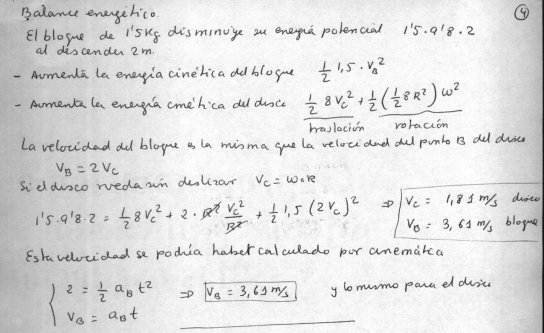 4
Balance energético.
El bloque de 1'5 Kg disminuye su energía potencial 1'5·9'8·2
al descender 2m.
- Aumenta la energía cinética del bloque 1/2 1,5 · V_B²
- Aumenta la energía cinética del disco 1/2 8 V_C² + 1/2 (1/2 8 R²) ω²
traslación rotación
La velocidad del bloque es la misma que la velocidad del punto B del disco
V_B = 2 V_C
Si el disco rueda sin deslizar V_C = ω·R
1'5·9'8·2 = 1/2 8 V_C² + 2 · R² V_C²/R² + 1/2 1,5 (2 V_C)² ⇒ V_C = 1,81 m/s disco
V_B = 3,61 m/s bloque
Esta velocidad se podría haber calculado por cinemática
{ 2 = 1/2 a_B t² ⇒ V_B = 3,61 m/s y lo mismo para el disco
V_B = a_B t